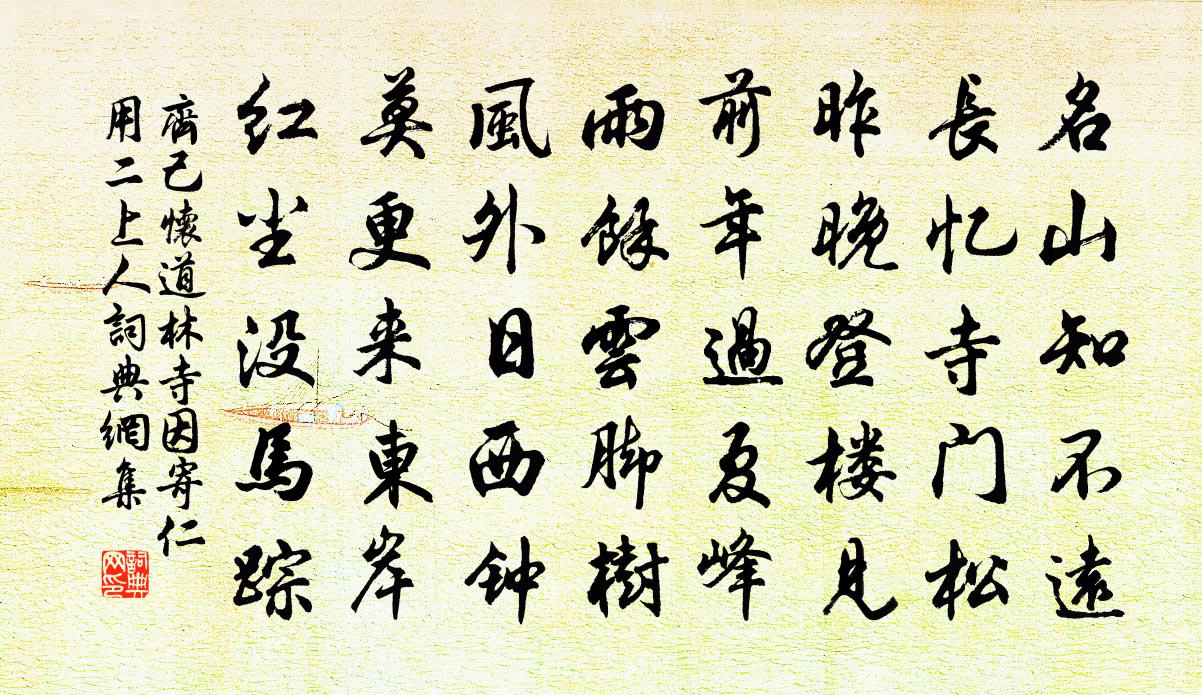 名山知不遠
長忆寺门松
昨晚登楼見
前年過夏峰
雨餘雲脚樹
風外日西钟
莫更来東岸
红尘没馬踪
齊己懷道林寺因寄仁
用二上人詞典網集
詞典网印